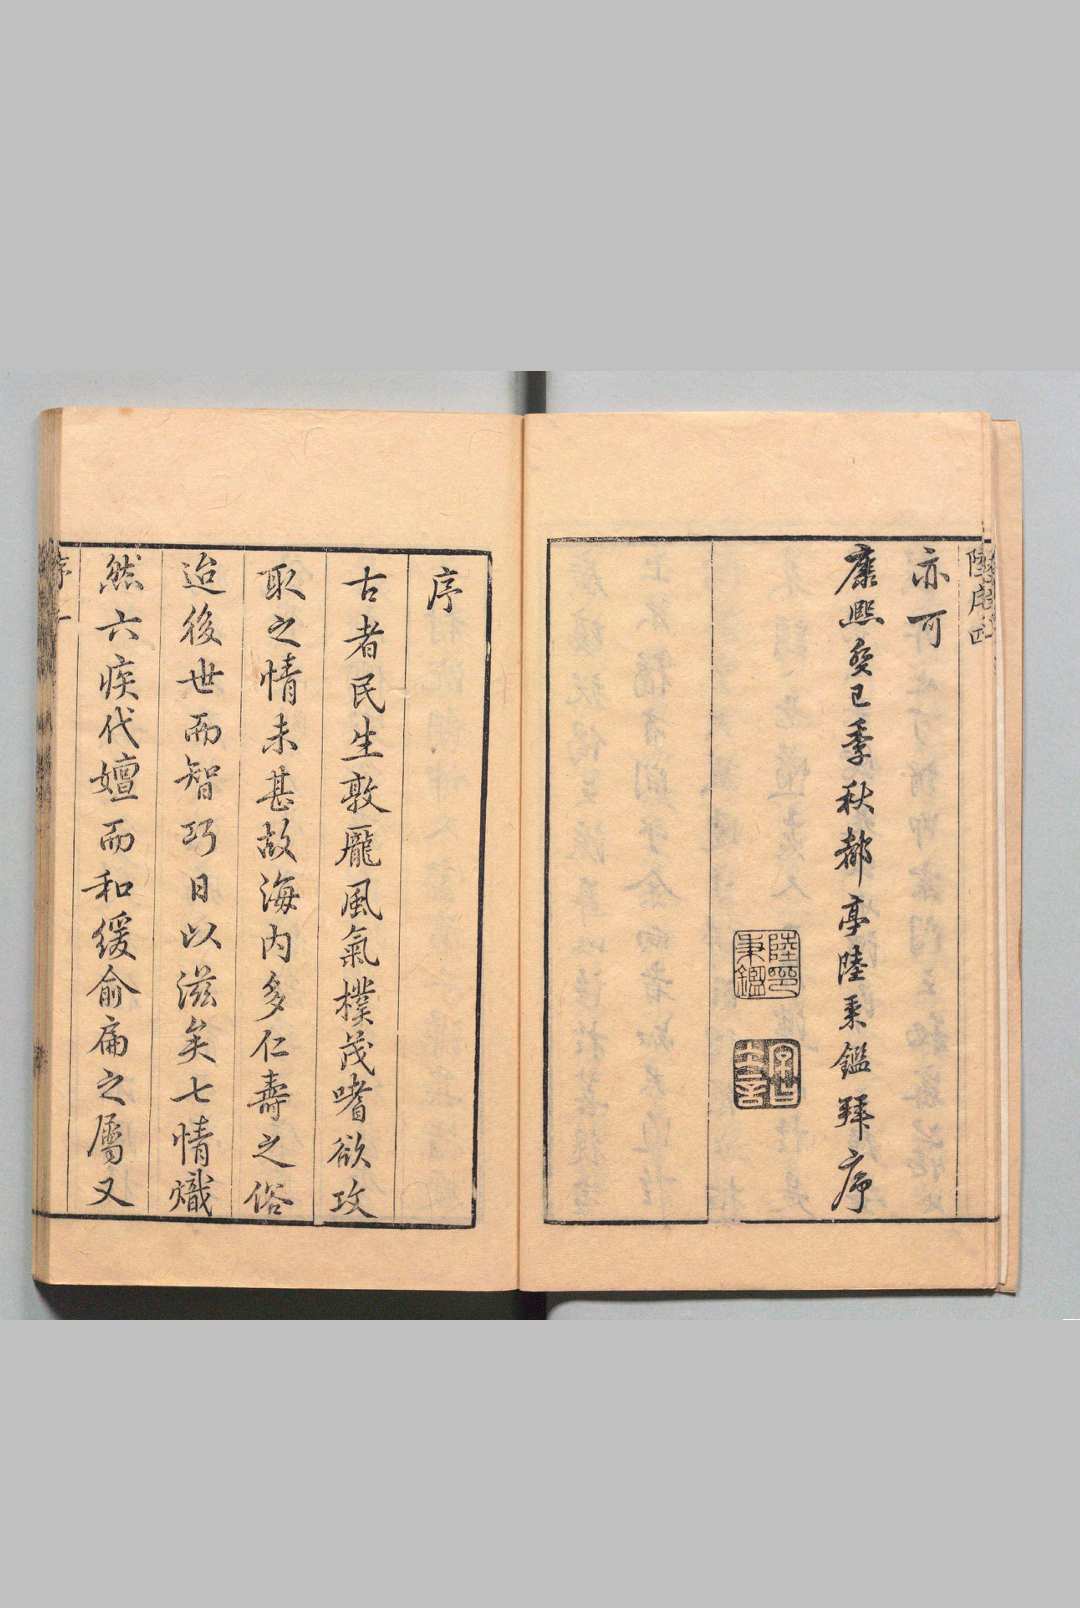 陸序四
亦可
康熙癸巳季秋都亭陸秉鑑拜序
陸印秉鑑
序
古者民生敦龐風氣樸茂嗜欲攻
取之情未甚故海內多仁壽之俗
迨後世而智巧日以滋矣七情熾
然六疾代嬗而和緩俞扁之屬又
序一